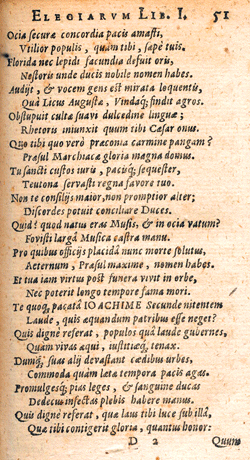 ELEGIARVM LIB. I. 51
Ocia securæ concordia pacis amasti,
Vtilior populis, quam tibi, sæpè tuis.
Florida nec lepidi facundia defuit oris,
Nestoris unde ducis nobile nomen habes.
Audijt, & vocem gens est mirata loquentis,
Quà Licus Augustæ, Vindaq́; findit agros.
Obstupuit culta suavi dulcedine linguæ;
Rhetoris iniunxit quum tibi Cæsar onus.
Quo tibi quo verò præconia carmine pangam?
Præsul Marchiacæ gloria magna domus.
Tu sancti custos iuris, pacisq́; sequester,
Teutona servasti regna favore tuo.
Non te consilijs maior, non promptior alter;
Discordes potuit conciliare Duces.
Quid? quod natus eras Musis, & in ocia vatum?
Fovisti larga Musica castra manu.
Pro quibus officijs placida nunc morte solutus,
Aeternum, Præsul maxime, nomen habes.
Et tua iam virtus post funera vivit in orbe,
Nec poterit longo tempore fama mori.
Te quoq́; pacata IOACHIME Secunde nitentem
Laude, quis æquandum patribus esse neget?
Qui dignè referat, populos quà laude gubernes,
Quam vivas æqui, iustitiæq́; tenax.
Dumq́; suas alij devastant cædibus urbes,
Commoda quàm læta tempora pacis agas.
Promulgesq́; pias leges, & sanguine ducas
Dedecus infectas plebis habere manus.
Qui dignè referat, quæ laus tibi luce sub illa,
Quæ tibi contigerit gloria, quantus honor:
D 2 Quum